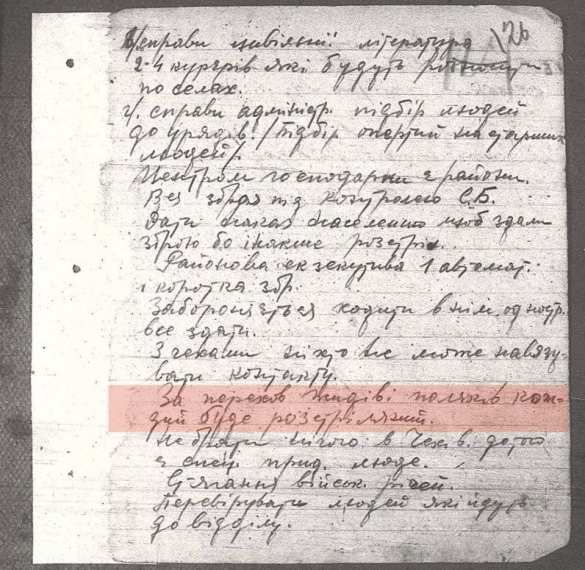 126
в/ справи цивільні: література
2-4 курєрів які будуть розносити
по селах.
г/. справи адміністр. підбір людей
до урядів! /підбір опертий на старших
людей/
Центром господарки є райони.
Вся зброя під контролею С.Б.
Дати наказ населенню щоб здали
зброю бо інакше розстріл.
Районова екзекутива 1 автомат.
і коротка збр.
Забороняється ходити в нім. одностр.
все здати.
З чехами ніхто не може навязу-
вати контакту.
За перехов жидів і поляків кож-
дий буде розстріляний.
Не брати нічого в Чехів. до того
є спец. прид. люде.
Стягання військ. речей.
Перевірувати людей які йдуть
до відділу.